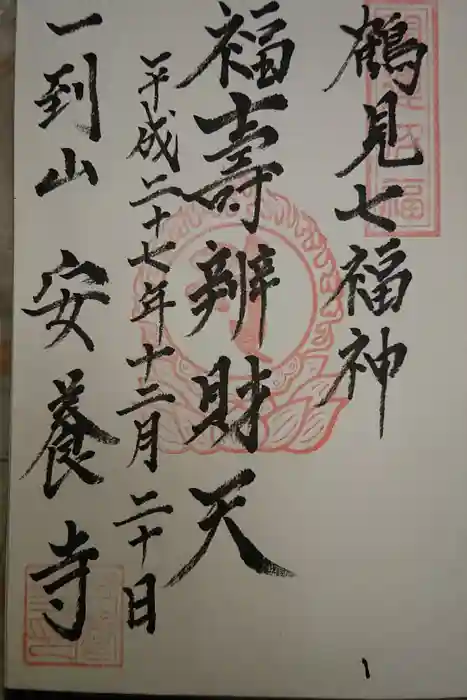 鶴見七福神
福壽辨財天
平成二十七年十二月二十日
一到山 安養寺